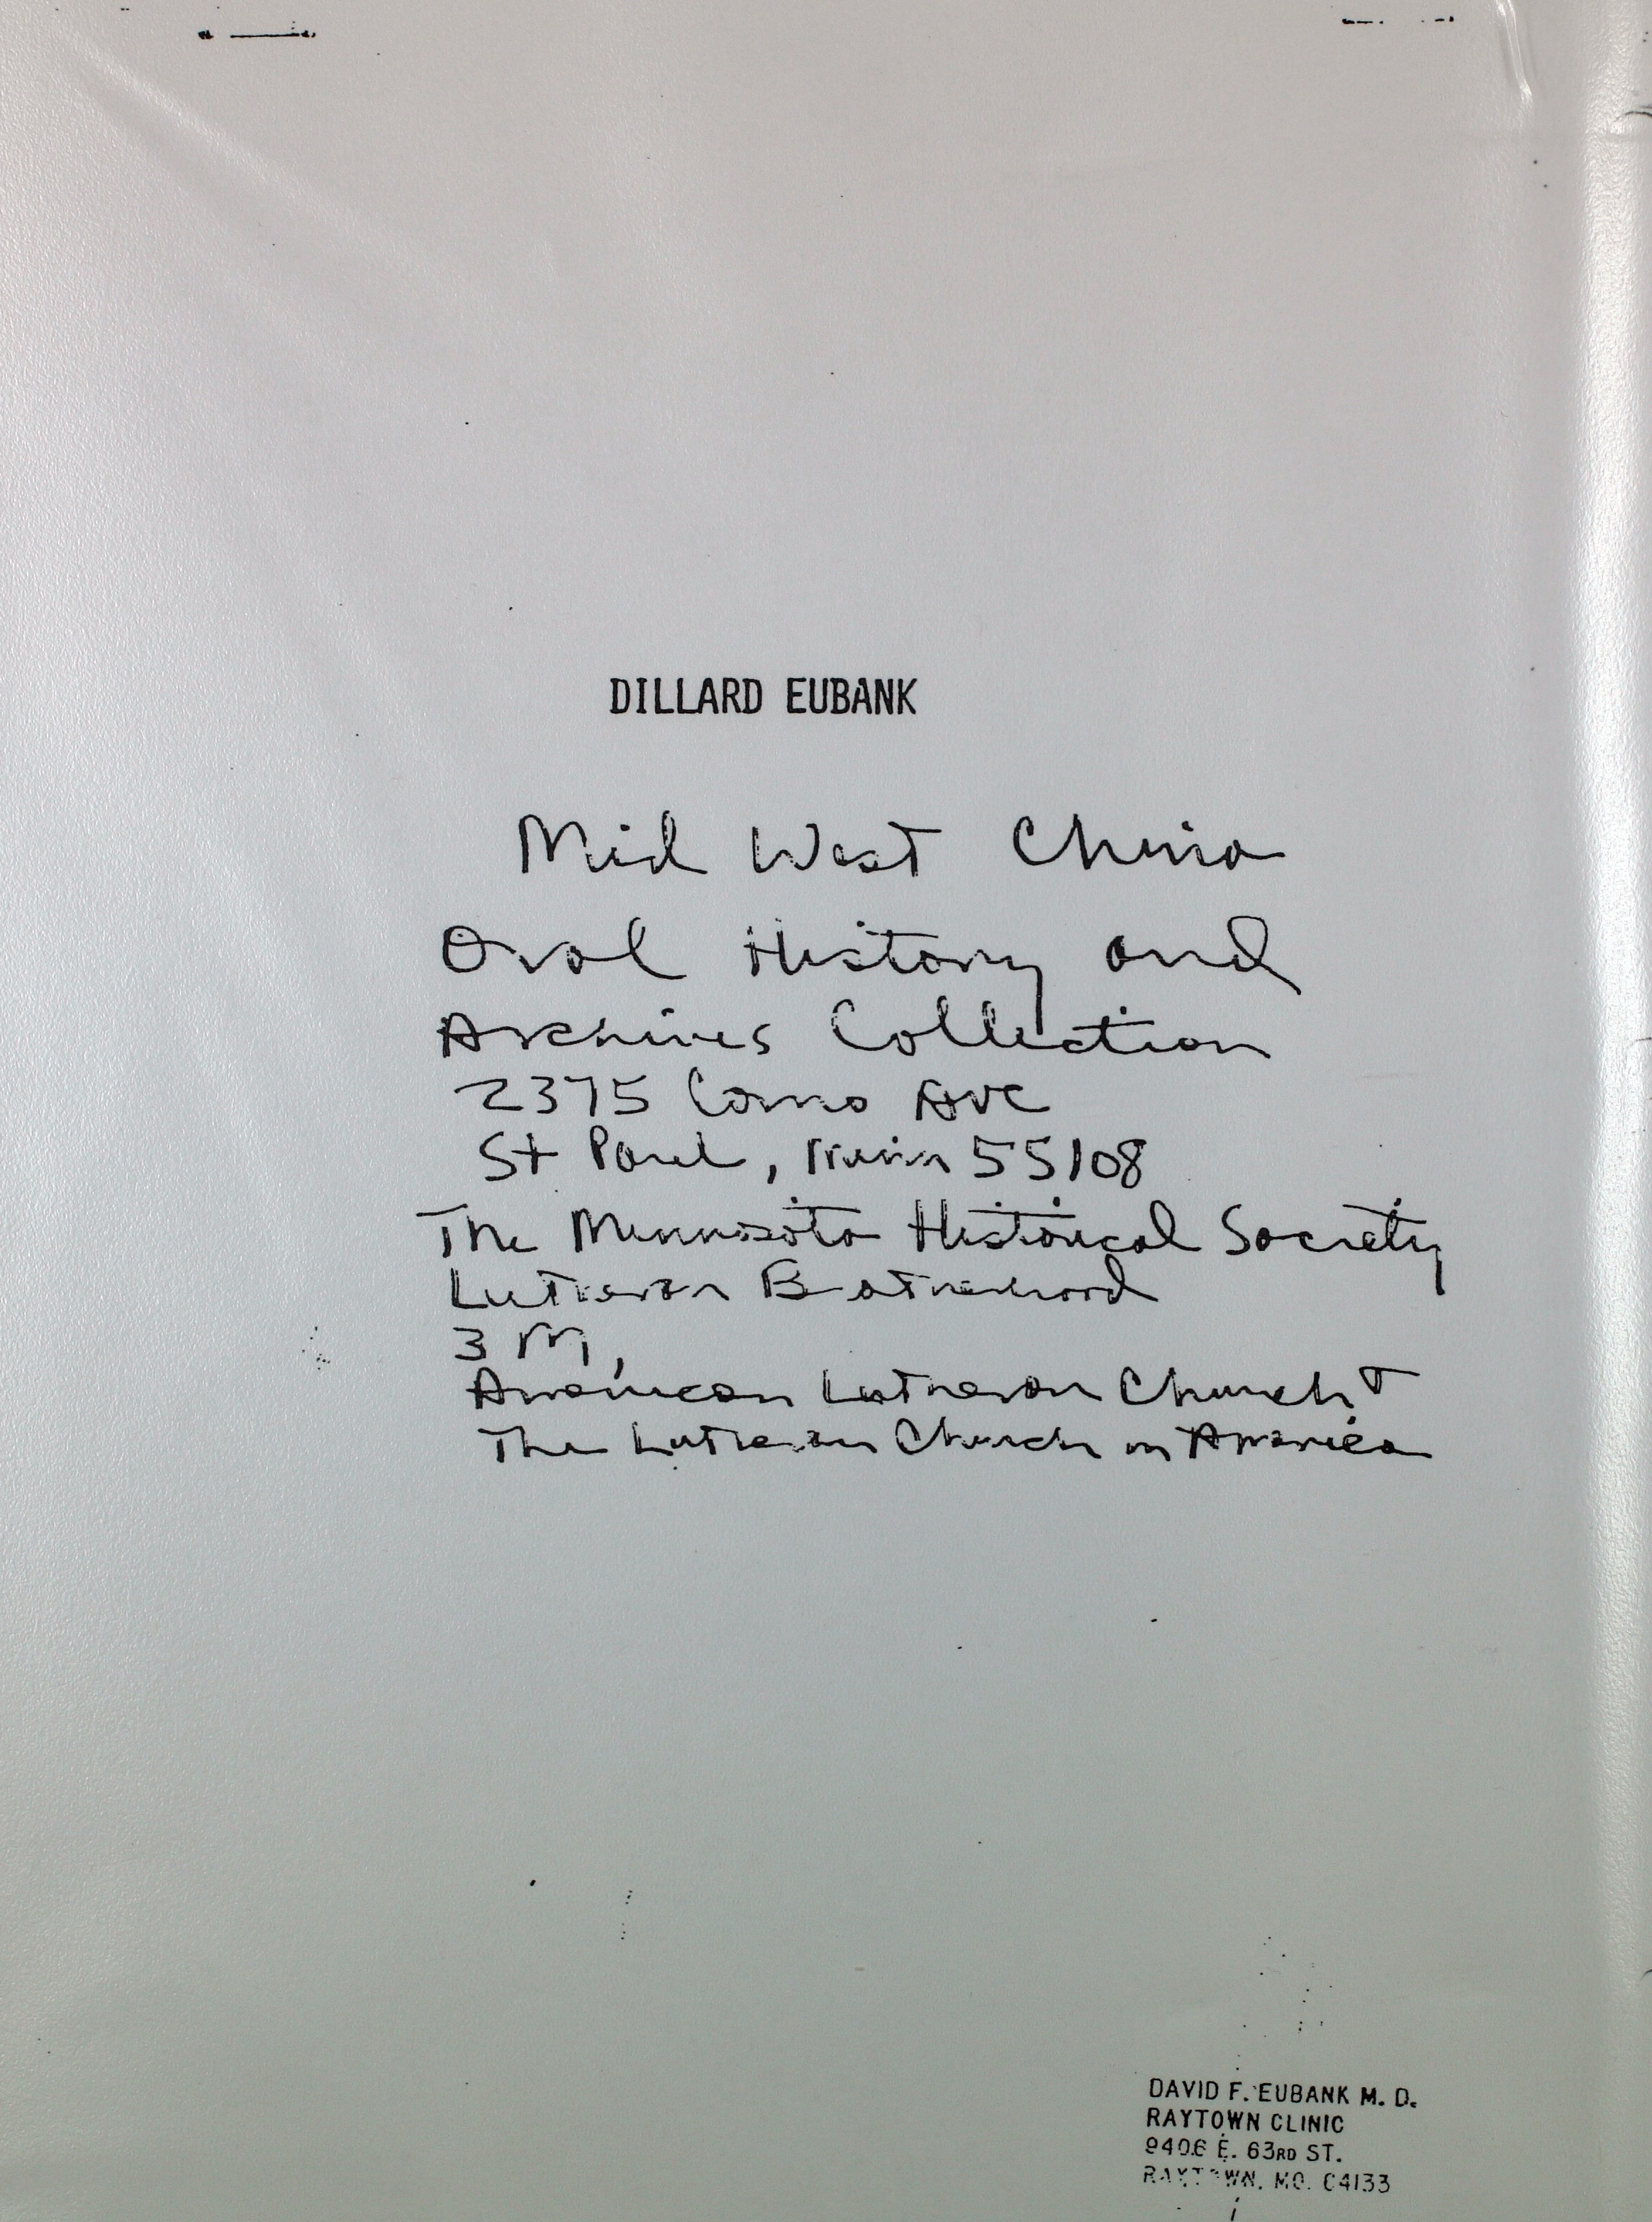 DILLARD EUBANK
Mid West China
Oral History and
Archives Collection
2375 Como Ave
St Paul, Minn 55108
The Minnesota Historical Society
Lutheran Brotherhood
3 M,
American Lutheran Church +
The Lutheran Church in America
DAVID F. EUBANK M. D.
RAYTOWN CLINIC
9406 E. 63RD ST.
RAYTOWN, MO. 64133